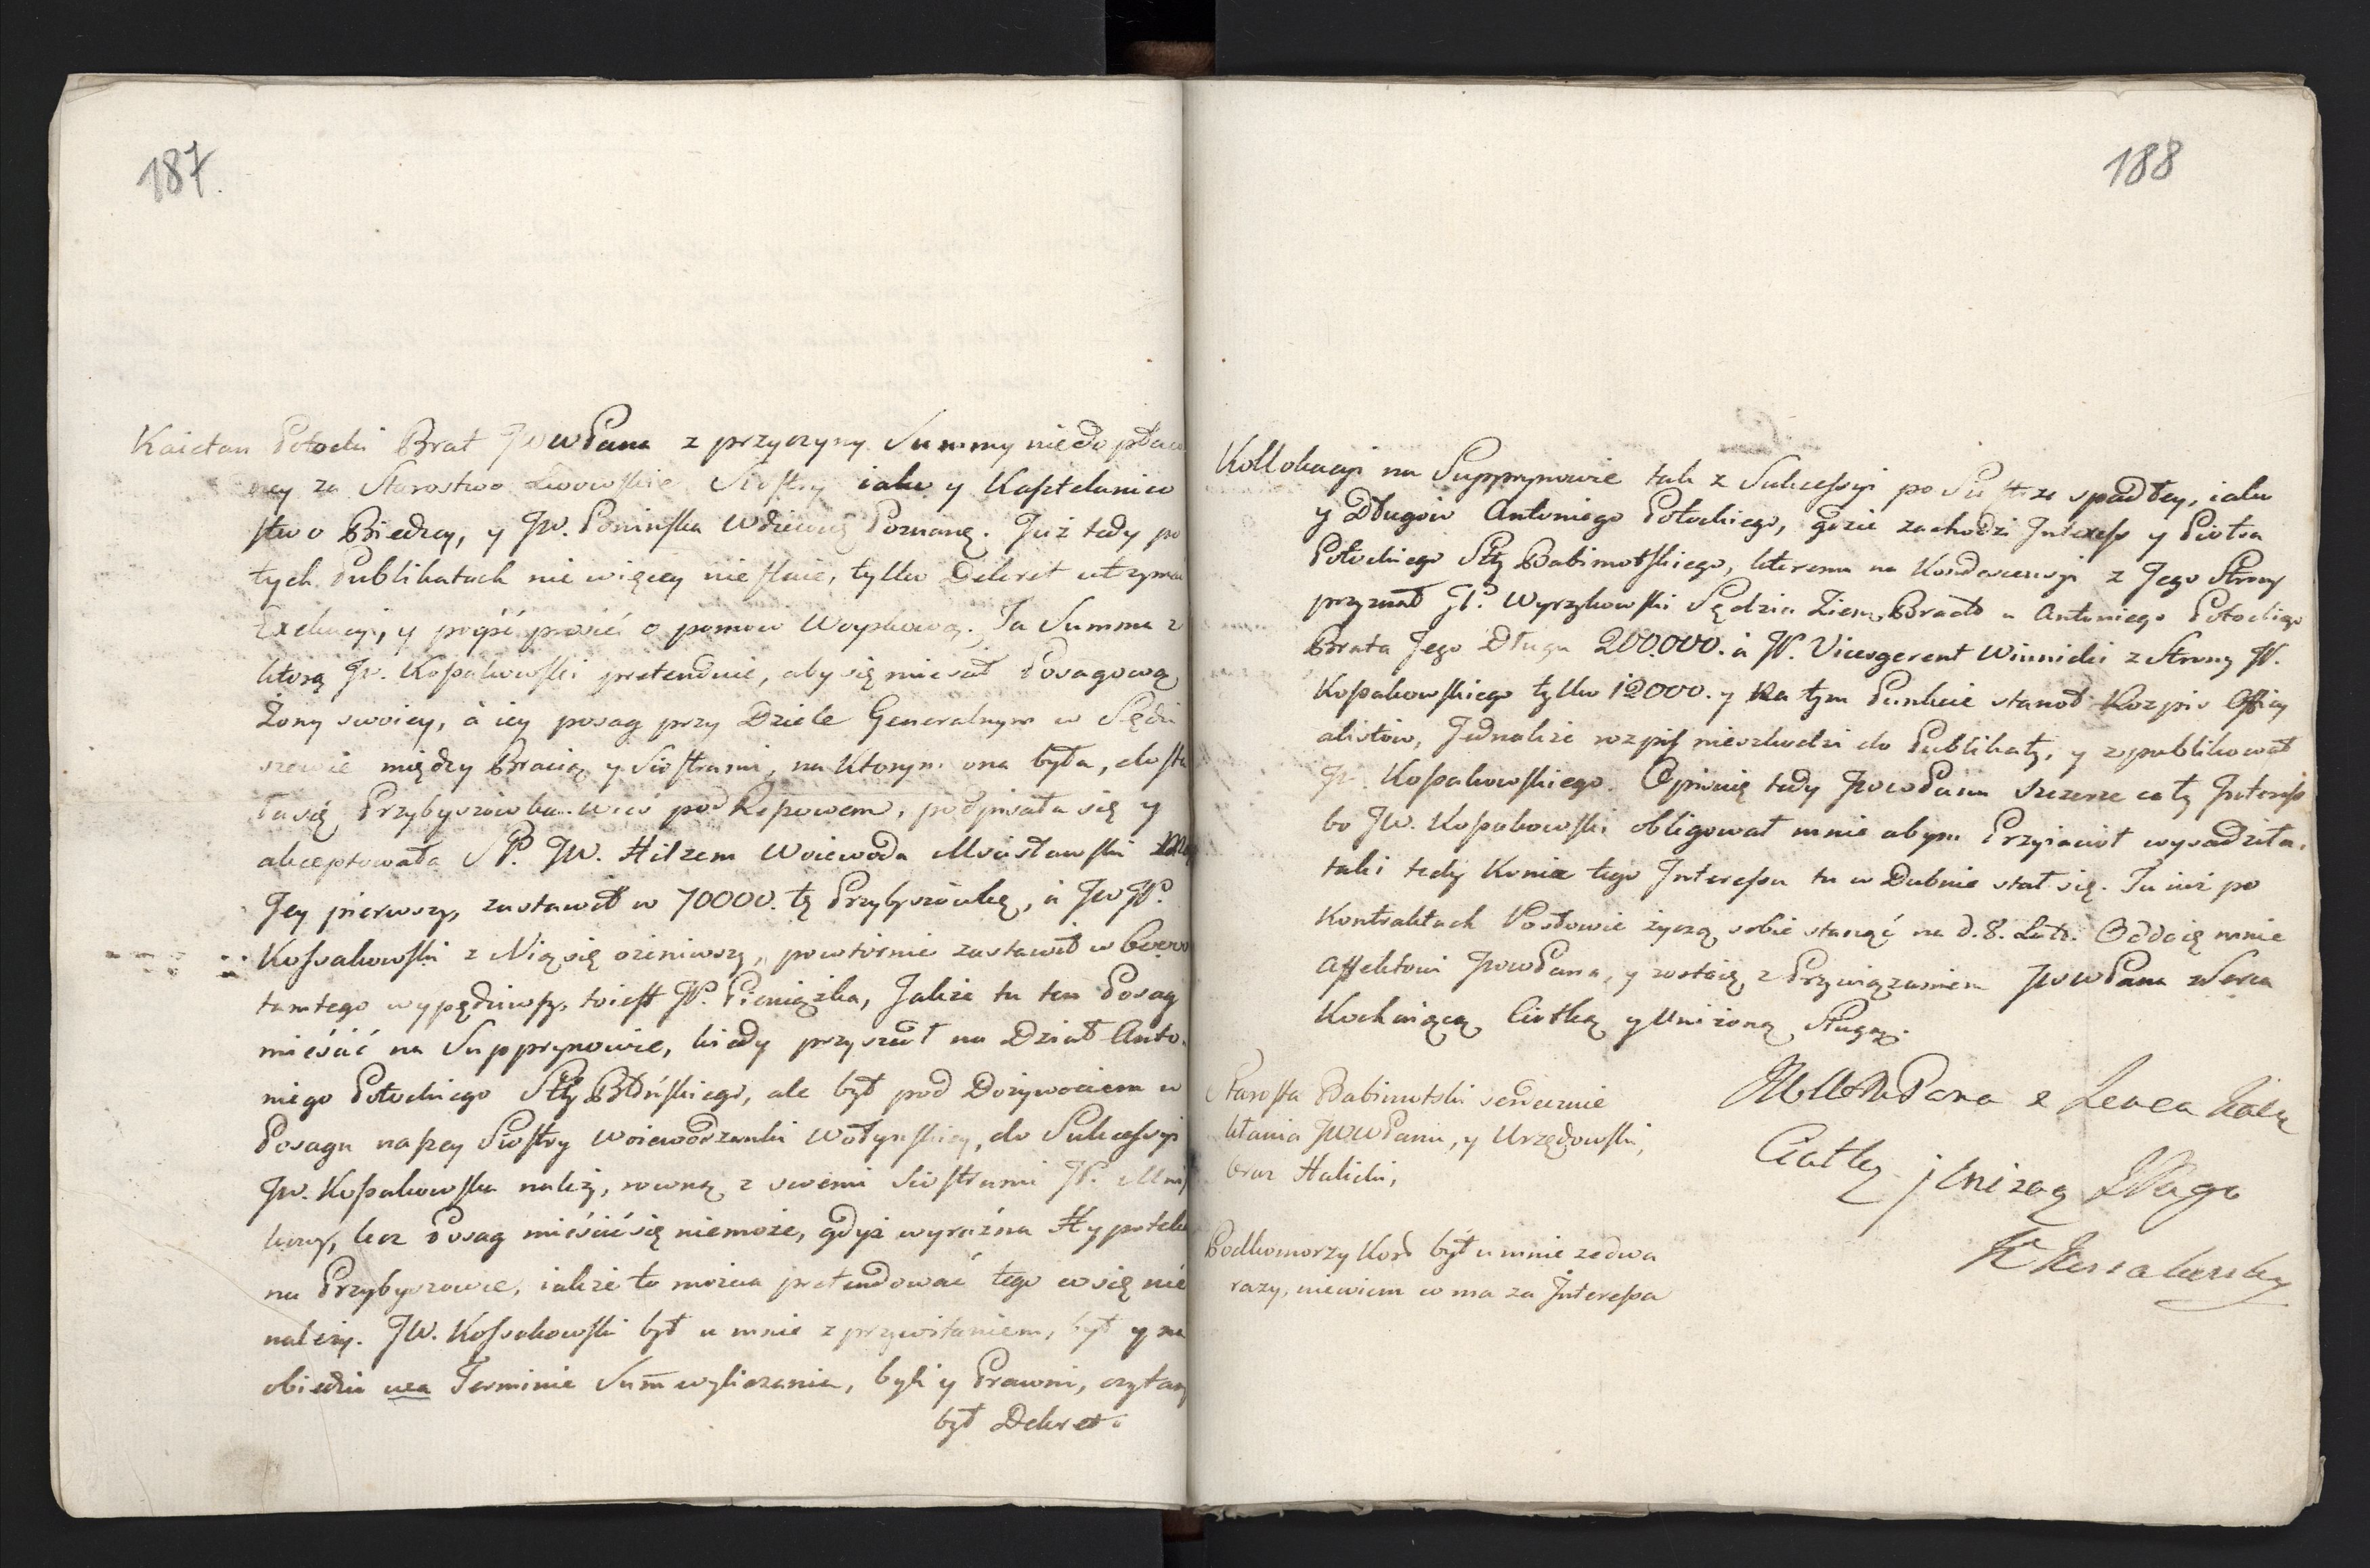 187.
Kaietan Potocki Brat JWWPana z przyczyny Summy niedopłaco
ney za Starostwo Lwowskie Siostry iako y Kasztelanico
stwo Bieckcy, y JW. Ponińska Wdziewiną Poznaną. Już tedy po
tych Publikatach nie więcey niestuie, tylko Dekret utrzymać
Exekucyi, y pogść prosić o pomow Woyskową. Ta Summa z
ktorą JW. Kossakowski pretenduie, aby się miesał Posagową
Żony swoiey, á iey posag przy Dziele Generalnym w Sędzi
szowie między Bracią y Siostrami, na ktorym ona była, dosta
ła się Przybyszowka wieś pod Rzeszowem, podpisała się y
akceptowała ŚP. JW. Hilzem Woiewoda Mscisławski Mąż
Jey pierwszy, zastawił w 70000. tę Przybyszówkę, á JWJP.
Kossakowski z Nią się ożeniwszy, powtórnie zastawił w
tamtego wypędziwszy, toiest JP. Pieniążka, Jakże tu ten Posag
mieścić na Supprynowie, kiedy przyszedł na Dział Anto
niego Potockiego Stty Błńskiego, ale był pod Dożywociem w
Posagu naszey Siostry Woiewodzanki Wołynskiey, do Sukcessyi
JW. Kossakowska należy, rowną z swemi Siostrami JP. Mni
kowy, lecz Posag mieścić się niemoże, gdyż wyraźna Hypoteka
na Przybyszowce, iakże to można pretendować tego co się nie
należy. JW. Kossakowski był u mnie z przywitaniem, był y na
obiedzie na Terminie Sum̄ wyliczenia, byli y Prawni, czytany
był Dekret.
188
Kollokacyi na Suppyynowie tak z Sukcessyi po Siostrze spadłey, iako
y Długow Antoniego Potockiego, gdzie zachodzi Interess y Piotra
Potockiego Stty Babimostskiego, kteremu na Kondescensyi z Jego Strony
przyznał JP. Wyrzykowski Sędzia Ziem: Bracł: u Antoniego Potockiego
Brata Jego Długu 200.000. á JP. Vicesgerent Winnicki z Strony JP.
Kossakowskiego tylko 12000. y Na tym Punkcie stanoł Rozpis Officy
alistow, Jednakże rozpis nieszkodzi do Publikaty, y zpublikował
JP. Kossakowskiego. Opisuię tedy JWWPanu szczerze cały Interess
bo JW. Kossakowski obligował mnie abym Przyiacioł wysadziła.
taki tedy Koniec tego Interessu tu w Dubnie stał się. Tu iuż po
Kontraktach Posłowie życzą sobie stanąć na d. 8. Lut: Oddaię mnie
affektowi JWWPana, y zostaię z Przywiązaniem JWWPana z Serca
Kochaiącą Ciotką y Uniżoną Sługą.
JWWPana z Serca Koch
Ciotką j Unizoną Sługa
K Kossakowska
Starosta Babimotski serdecznie
kłania JWWPanu, y Urzędowski,
oraz Halicki,
Podkomorzy Kor: był u mnie ze dwa
razy, niewiem co ma za Interessa